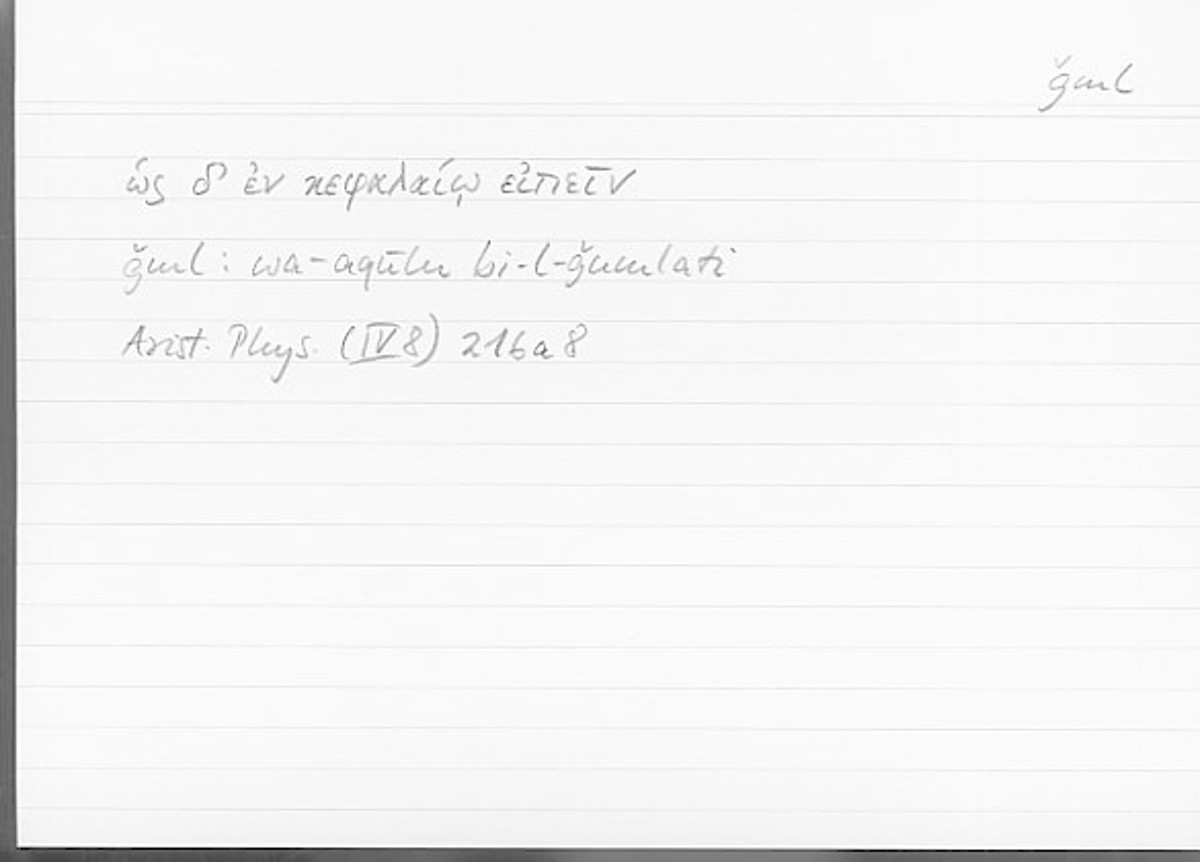 ǧml
ὡς δ' ἐν κεφαλαίῳ εἰπεῖν
ǧml: wa-aqūlu bi-l-ǧumlati
Arist. Phys. (IV 8) 216a8